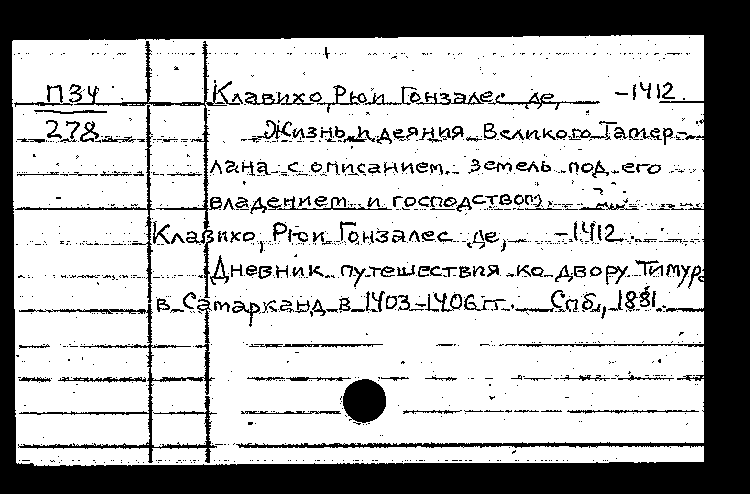 ПЗ4 Клавихо, Рюи Гонзалес де, -1412
278 Жизнь и деяния Великого Тамер-
лана с описанием земель под его
владением и господством.
Клавихо, Рюи Гонзалес де, -1412.
Дневник путешествия ко двору Тимура
в Самарканд в 1403-1406 гг. Спб., 1881.